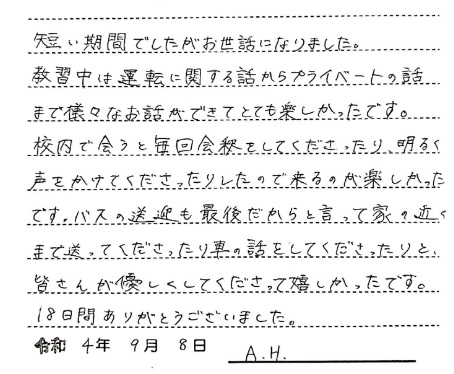 短い期間でしたがお世話になりました。
教習中は運転に関する話からプライベートの話
まで様々なお話ができてとても楽しかったです。
校内で会うと毎回会釈をしてくださったり、明るく
声をかけてくださったりしたので来るのが楽しかった
です。バスの送迎も最後だからと言って家の近く
まで送ってくださったり車の話をしてくださったりと、
皆さんが優しくしてくださって嬉しかったです。
18日間ありがとうございました。
令和 4年 9月 8日 A.H.